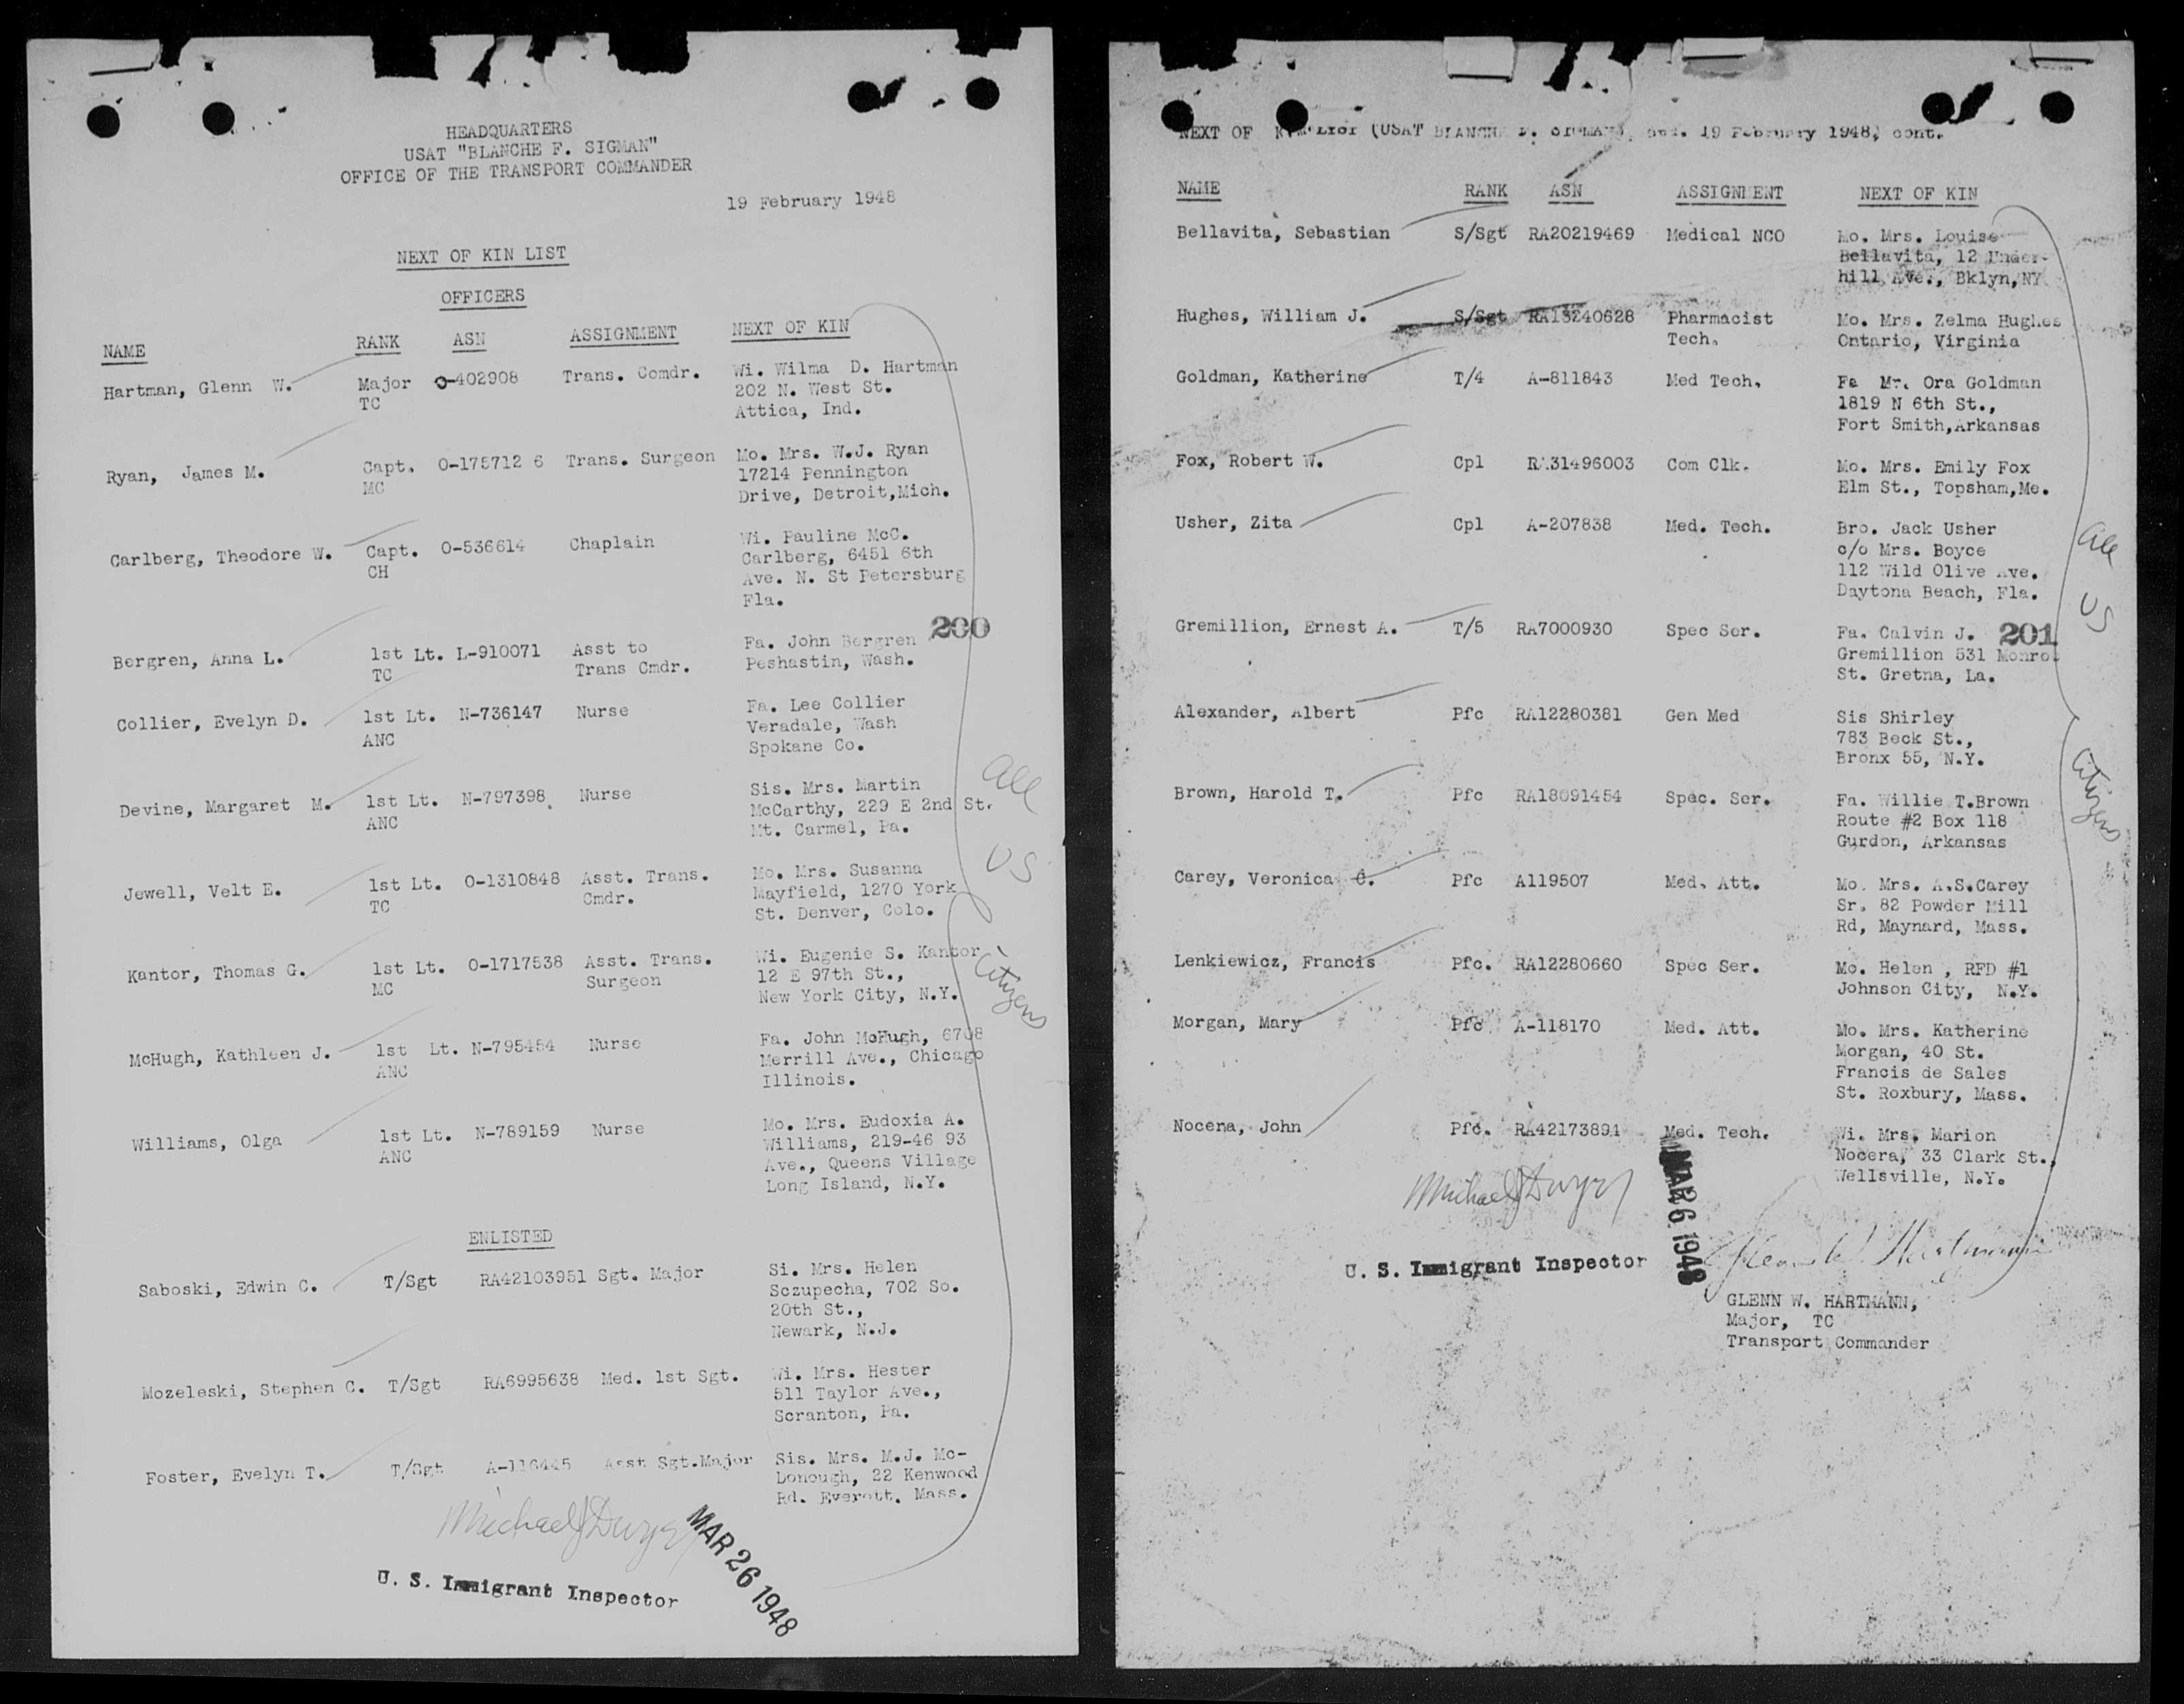 HEADQUARTERS
USAT "BLANCHE F. SIGMAN"
OFFICE OF THE TRANSPORT COMMANDER
19 February 1948
NEXT OF KIN LIST
OFFICERS
NAME RANK ASN ASSIGNMENT NEXT OF KIN
Hartman, Glenn W. Major O-402908 Trans. Comdr. Wi. Wilma D. Hartman
TC 202 N. West St.
Attica, Ind.
Ryan, James M. Capt. O-175712 6 Trans. Surgeon Mo. Mrs. W.J. Ryan
MC 17214 Pennington
Drive, Detroit,Mich.
Carlberg, Theodore W. Capt. O-536614 Chaplain Wi. Pauline McC.
CH Carlberg, 6451 6th
Ave. N. St Petersburg
Fla.
200
Bergren, Anna L. 1st Lt. L-910071 Asst to Fa. John Bergren
TC Trans Cmdr. Peshastin, Wash.
Collier, Evelyn D. 1st Lt. N-736147 Nurse Fa. Lee Collier
ANC Veradale, Wash
Spokane Co.
Devine, Margaret M. 1st Lt. N-797398 Nurse Sis. Mrs. Martin
ANC McCarthy, 229 E 2nd St.
Mt. Carmel, Pa.
Jewell, Velt E. 1st Lt. O-1310848 Asst. Trans. Mo. Mrs. Susanna
TC Cmdr. Mayfield, 1270 York
St. Denver, Colo.
Kantor, Thomas G. 1st Lt. O-1717538 Asst. Trans. Wi. Eugenie S. Kantor
MC Surgeon 12 E 97th St.,
New York City, N.Y.
McHugh, Kathleen J. 1st Lt. N-795454 Nurse Fa. John McHugh, 6708
ANC Merrill Ave., Chicago
Illinois.
Williams, Olga 1st Lt. N-789159 Nurse Mo. Mrs. Eudoxia A.
ANC Williams, 219-46 93
Ave., Queens Village
Long Island, N.Y.
All
US
Citizens
ENLISTED
Saboski, Edwin C. T/Sgt RA42103951 Sgt. Major Si. Mrs. Helen
Sczupecha, 702 So.
20th St.,
Newark, N.J.
Mozeleski, Stephen C. T/Sgt RA6995638 Med. 1st Sgt. Wi. Mrs. Hester
511 Taylor Ave.,
Scranton, Pa.
Foster, Evelyn T. T/Sgt A-116445 Asst Sgt.Major Sis. Mrs. M.J. Mc-
Donough, 22 Kenwood
Rd. Everett, Mass.
Michael J Dwyer
MAR 26 1948
U. S. Immigrant Inspector
NEXT OF KIN LIST (USAT BLANCHE F. SIGMAN), 19 February 1948, cont.
NAME RANK ASN ASSIGNMENT NEXT OF KIN
Bellavita, Sebastian S/Sgt RA20219469 Medical NCO Mo. Mrs. Louise
Bellavita, 12 Under-
hill Ave., Bklyn,NY
Hughes, William J. S/Sgt RA13240628 Pharmacist Mo. Mrs. Zelma Hughes
Tech. Ontario, Virginia
Goldman, Katherine T/4 A-811843 Med Tech. Fa Mr. Ora Goldman
1819 N 6th St.,
Fort Smith,Arkansas
Fox, Robert W. Cpl RA31496003 Com Clk. Mo. Mrs. Emily Fox
Elm St., Topsham,Me.
Usher, Zita Cpl A-207838 Med. Tech. Bro. Jack Usher
c/o Mrs. Boyce
112 Wild Olive Ave.
Daytona Beach, Fla.
Gremillion, Ernest A. T/5 RA7000930 Spec Ser. Fa. Calvin J. 201
Gremillion 531 Monroe
St. Gretna, La.
Alexander, Albert Pfc RA12280381 Gen Med Sis Shirley
783 Beck St.,
Bronx 55, N.Y.
Brown, Harold T. Pfc RA18091454 Spec. Ser. Fa. Willie T.Brown
Route #2 Box 118
Gurdon, Arkansas
Carey, Veronica C. Pfc A119507 Med. Att. Mo. Mrs. A.S.Carey
Sr. 82 Powder Mill
Rd, Maynard, Mass.
Lenkiewicz, Francis Pfc. RA12280660 Spec Ser. Mo. Helen , RFD #1
Johnson City, N.Y.
Morgan, Mary Pfc A-118170 Med. Att. Mo. Mrs. Katherine
Morgan, 40 St.
Francis de Sales
St. Roxbury, Mass.
Nocera, John Pfc. RA42173891 Med. Tech. Wi. Mrs. Marion
Nocera, 33 Clark St.,
Wellsville, N.Y.
All
US
Citizens
Michael J Dwyer
MAR 26 1948
U. S. Immigrant Inspector
Glenn W Hartmann
GLENN W. HARTMANN,
Major, TC
Transport Commander